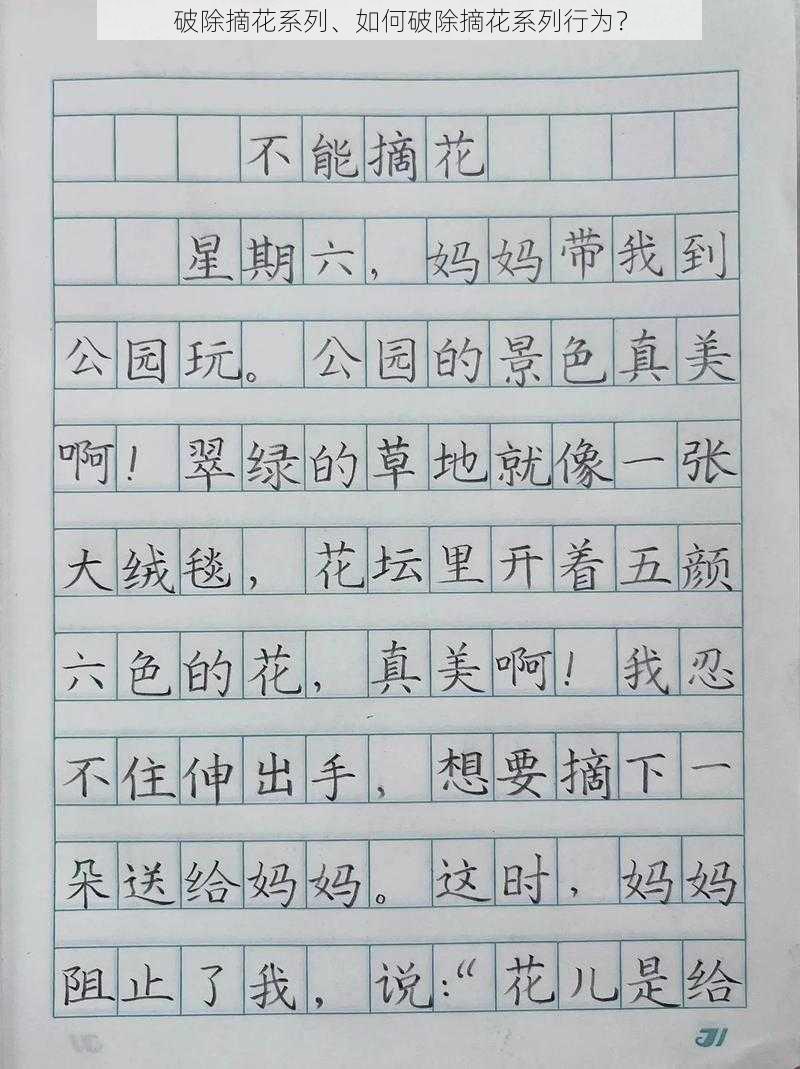 破除摘花系列、如何破除摘花系列行为？
不能摘花
星期六，妈妈带我到
公园玩。公园的景色真美
啊！翠绿的草地就像一张
大绒毯，花坛里开着五颜
六色的花，真美啊！我忍
不住伸出手，想要摘下一
朵送给妈妈。这时，妈妈
阻止了我，说：“花儿是给